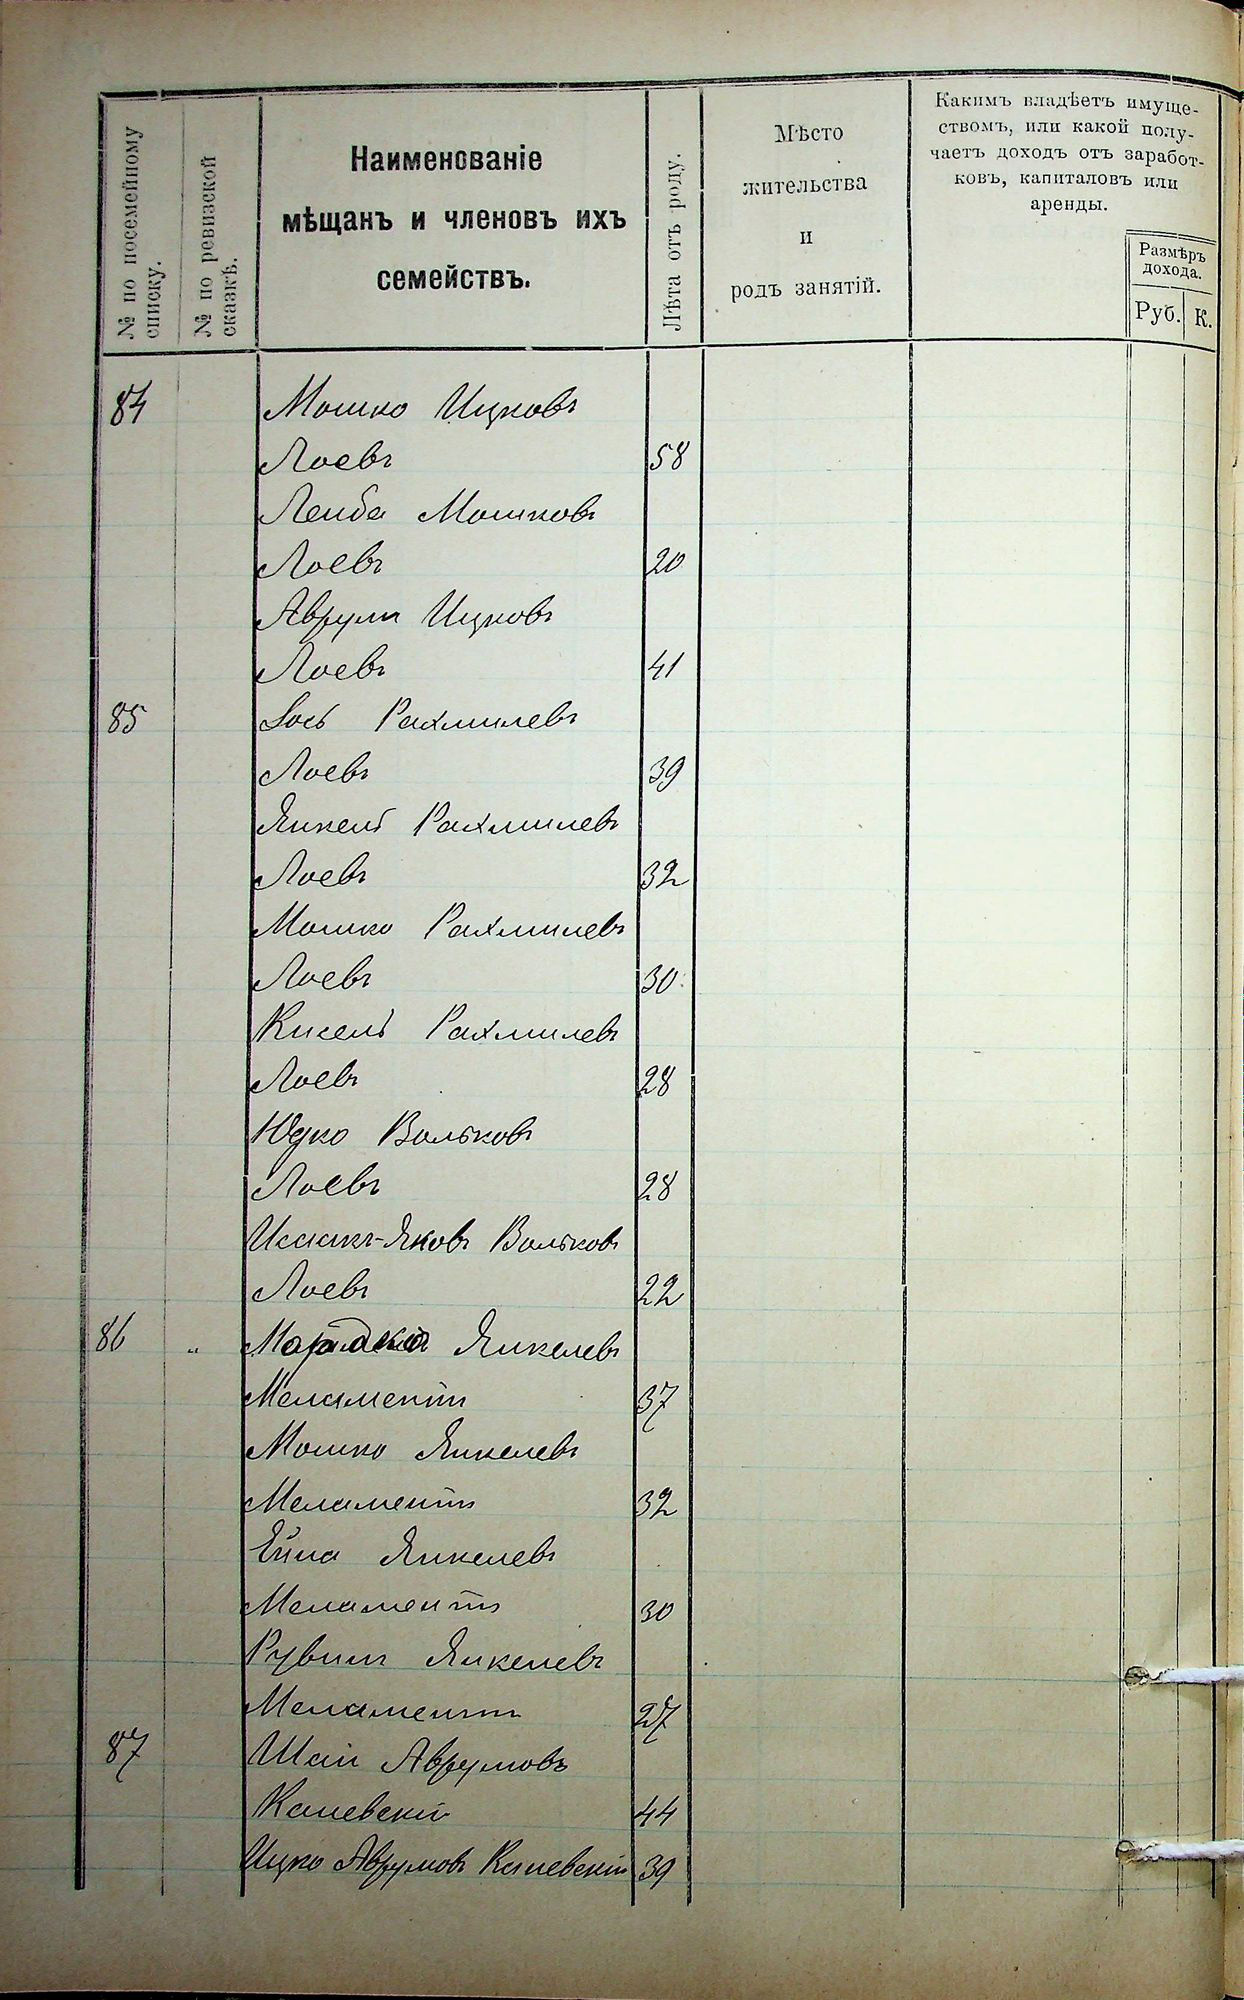 № по посемейному
списку.
№ по ревизской
сказкѣ.
Наименованіе
мѣщанъ и членовъ ихъ
семействъ.
Лѣта отъ роду.
Мѣсто
жительства
и
родъ занятій.
Какимъ владѣетъ имуще-
ствомъ, или какой полу-
чаетъ доходъ отъ заработ-
ковъ, капиталовъ или
аренды.
Размѣръ
дохода.
Руб. К.
84 Мошко Ицковъ
Лоевъ 58
Лейба Мошковъ
Лоевъ 20
Аврумъ Ицковъ
Лоевъ 41
85 Іось Рахмилевъ
Лоевъ 39
Янкель Рахмилевъ
Лоевъ 32
Мошко Рахмилевъ
Лоевъ 30
Кисель Рахмилевъ
Лоевъ 28
Юдко Вольковъ
Лоевъ 28
Исаакъ-Яковъ Вольковъ
Лоевъ 22
86 „ Янкелевъ
Меламентъ 37
Мошко Янкелевъ
Меламентъ 32
Ейна Янкелевъ
Меламентъ 30
Рувимъ Янкелевъ
Меламентъ 27
87 Шая Аврумовъ
Каневскій 44
Ицко Аврумовъ Каневскій 39